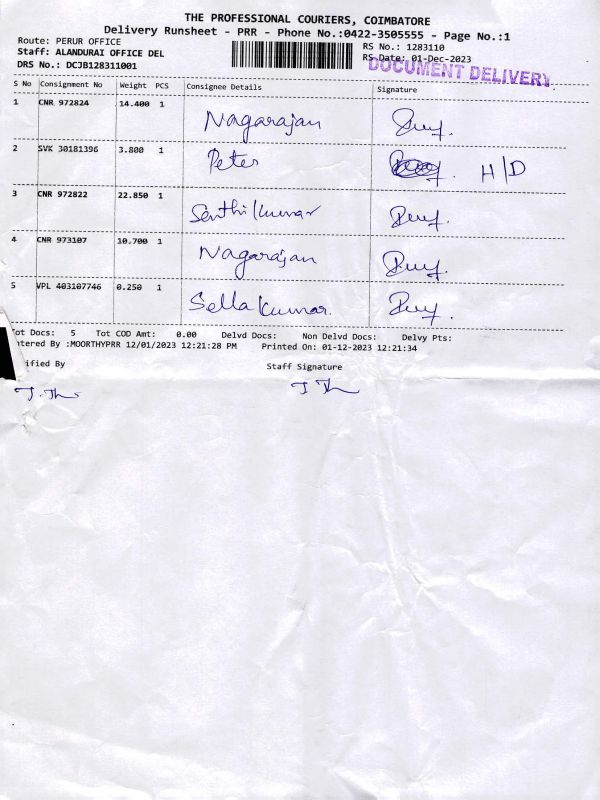 THE PROFESSIONAL COURIERS, COIMBATORE
Delivery Runsheet - PRR - Phone No.:0422-3505555 - Page No.:1
Route: PERUR OFFICE
RS No.: 1283110
Staff: ALANDURAI OFFICE DEL
RS Date: 01-Dec-2023
DRS No.: DCJB128311001
DOCUMENT DELIVERY
S No Consignment No Weight PCS Consignee Details Signature
1 CNR 972824 14.400 1 Nagarajan
2 SVK 30181396 3.800 1 Peter H/D
3 CNR 972822 22.850 1 Senthilkumar
4 CNR 973107 10.700 1 Nagarajan
5 VPL 403107746 0.250 1 Sellakumar.
ot Docs: 5 Tot COD Amt: 0.00 Delvd Docs: Non Delvd Docs: Delvy Pts:
ntered By :MOORTHYPRR 12/01/2023 12:21:28 PM Printed On: 01-12-2023 12:21:34
ified By Staff Signature